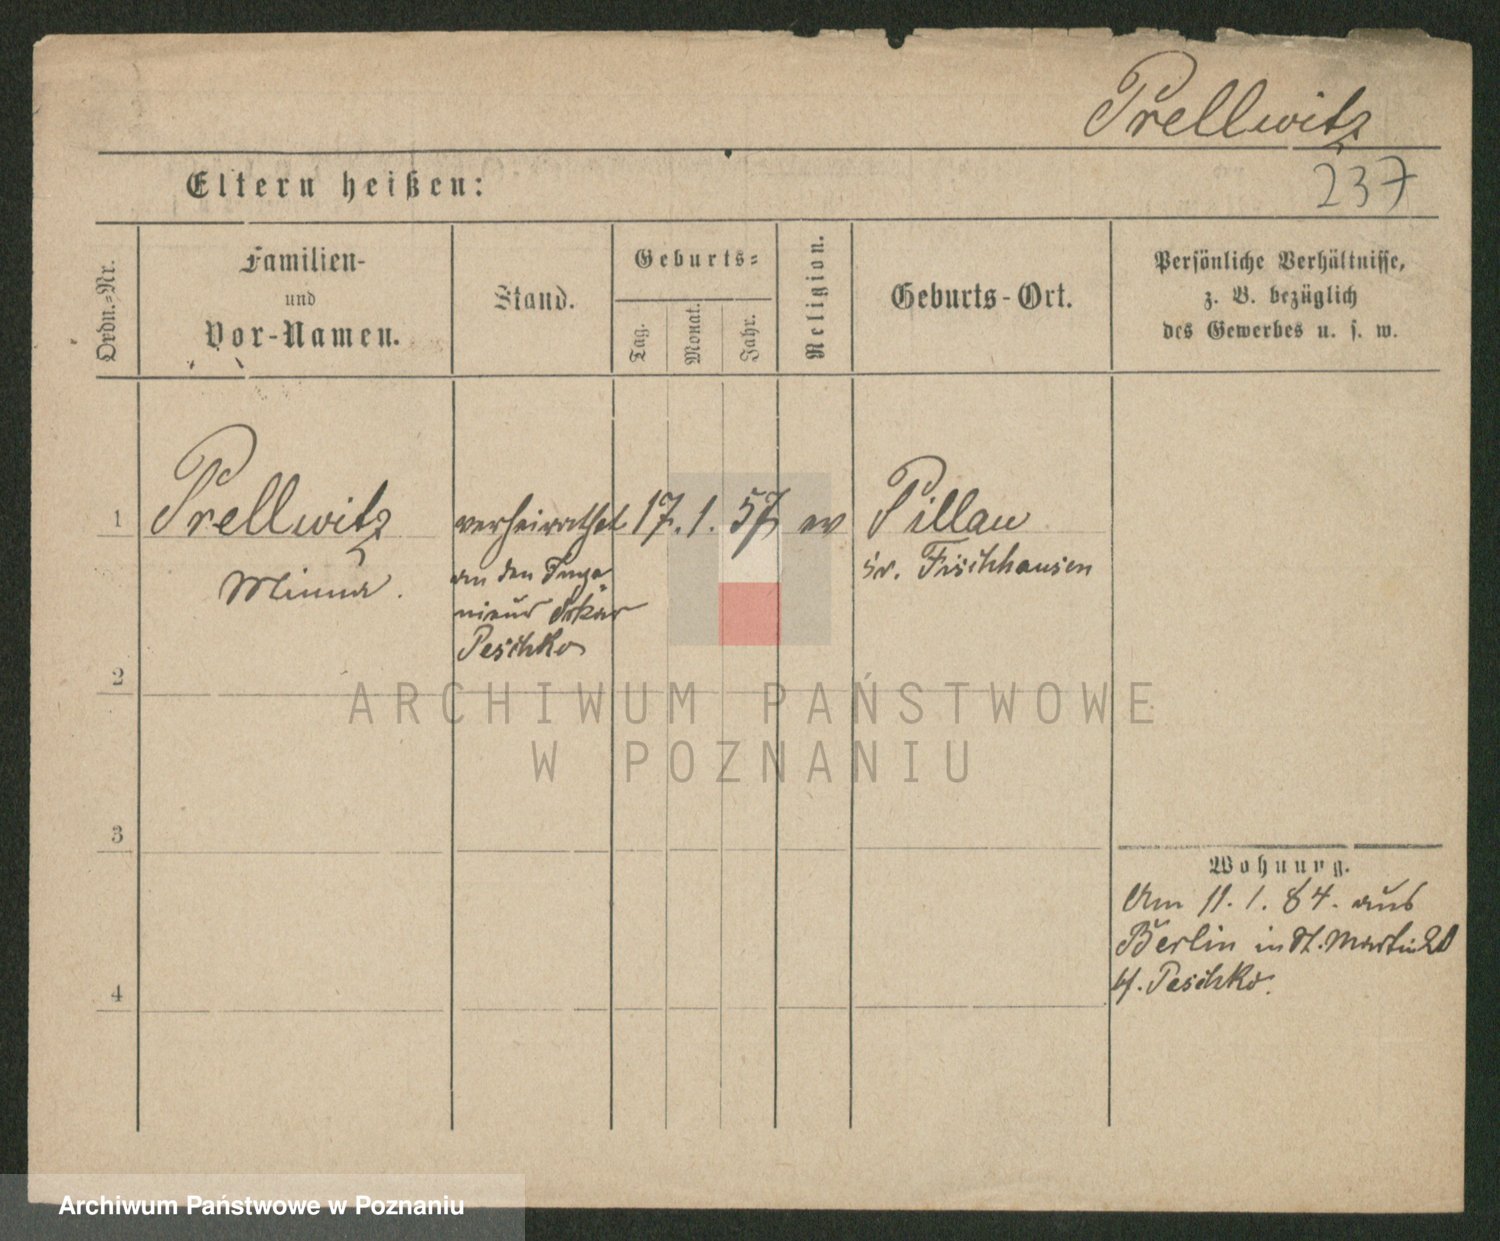 Prellwitz
237
Eltern heißen:
Ordn.-Nr.
Familien-
und
Vor-Namen.
Stand.
Geburts-
Tag.
Monat.
Jahr.
Religion.
Geburts-Ort.
Persönliche Verhältnisse,
z. B. bezüglich
des Gewerbes u. s. w.
1
Prellwitz
Minna.
verheirathet
an den Inge-
nieur Oskar
Peschko
17. 1. 57
ev
Pillau
Kr. Fischhausen
2
3
4
Wohnung.
Am 11. 1. 84. aus
Berlin in St. Martin 20
bf. Peschko.
ARCHIWUM PAŃSTWOWE
W POZNANIU
Archiwum Państwowe w Poznaniu